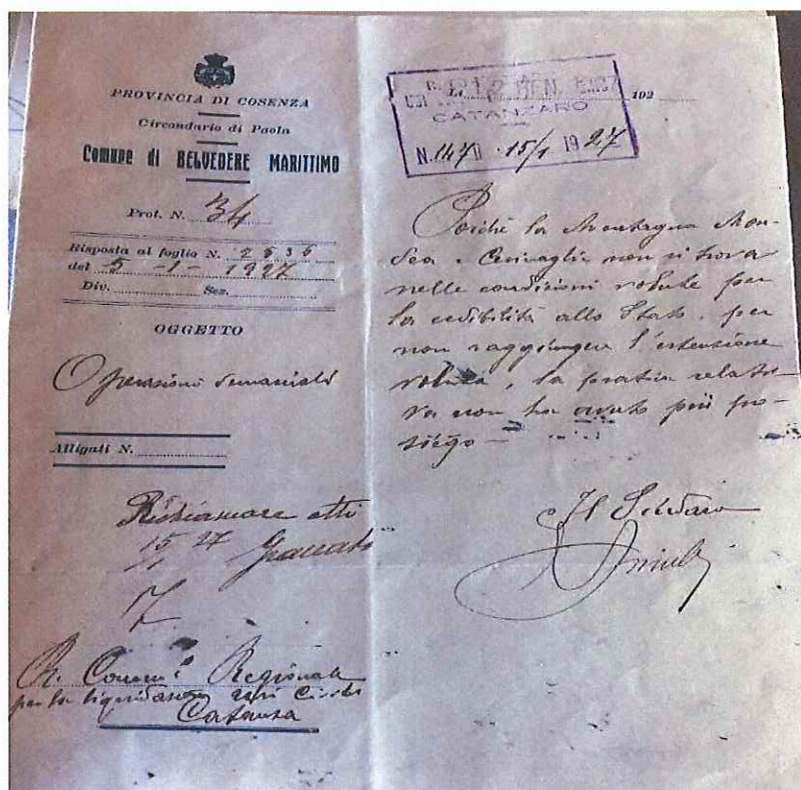 PROVINCIA DI COSENZA
Circondario di Paola
Comune di BELVEDERE MARITTIMO
Prot. N. 34
Risposta al foglio N. 2536
del 5 -1- 1927
Div. Sez.
OGGETTO
Operazioni demaniali
Alligati N.
Richiamare atti
15 27
1
R. Comm. Regionale
per la liquidazione usi civici
192
CATANZARO
N. 147 15/1 1927
Poichè la Montagna Mon-
dea e non si trova
nelle condizioni volute per
la cedibilità allo Stato, per
non raggiungere l'estensione
voluta, la pratica relati-
va non ha avuto più pro-
sieguo —
Il Sindaco